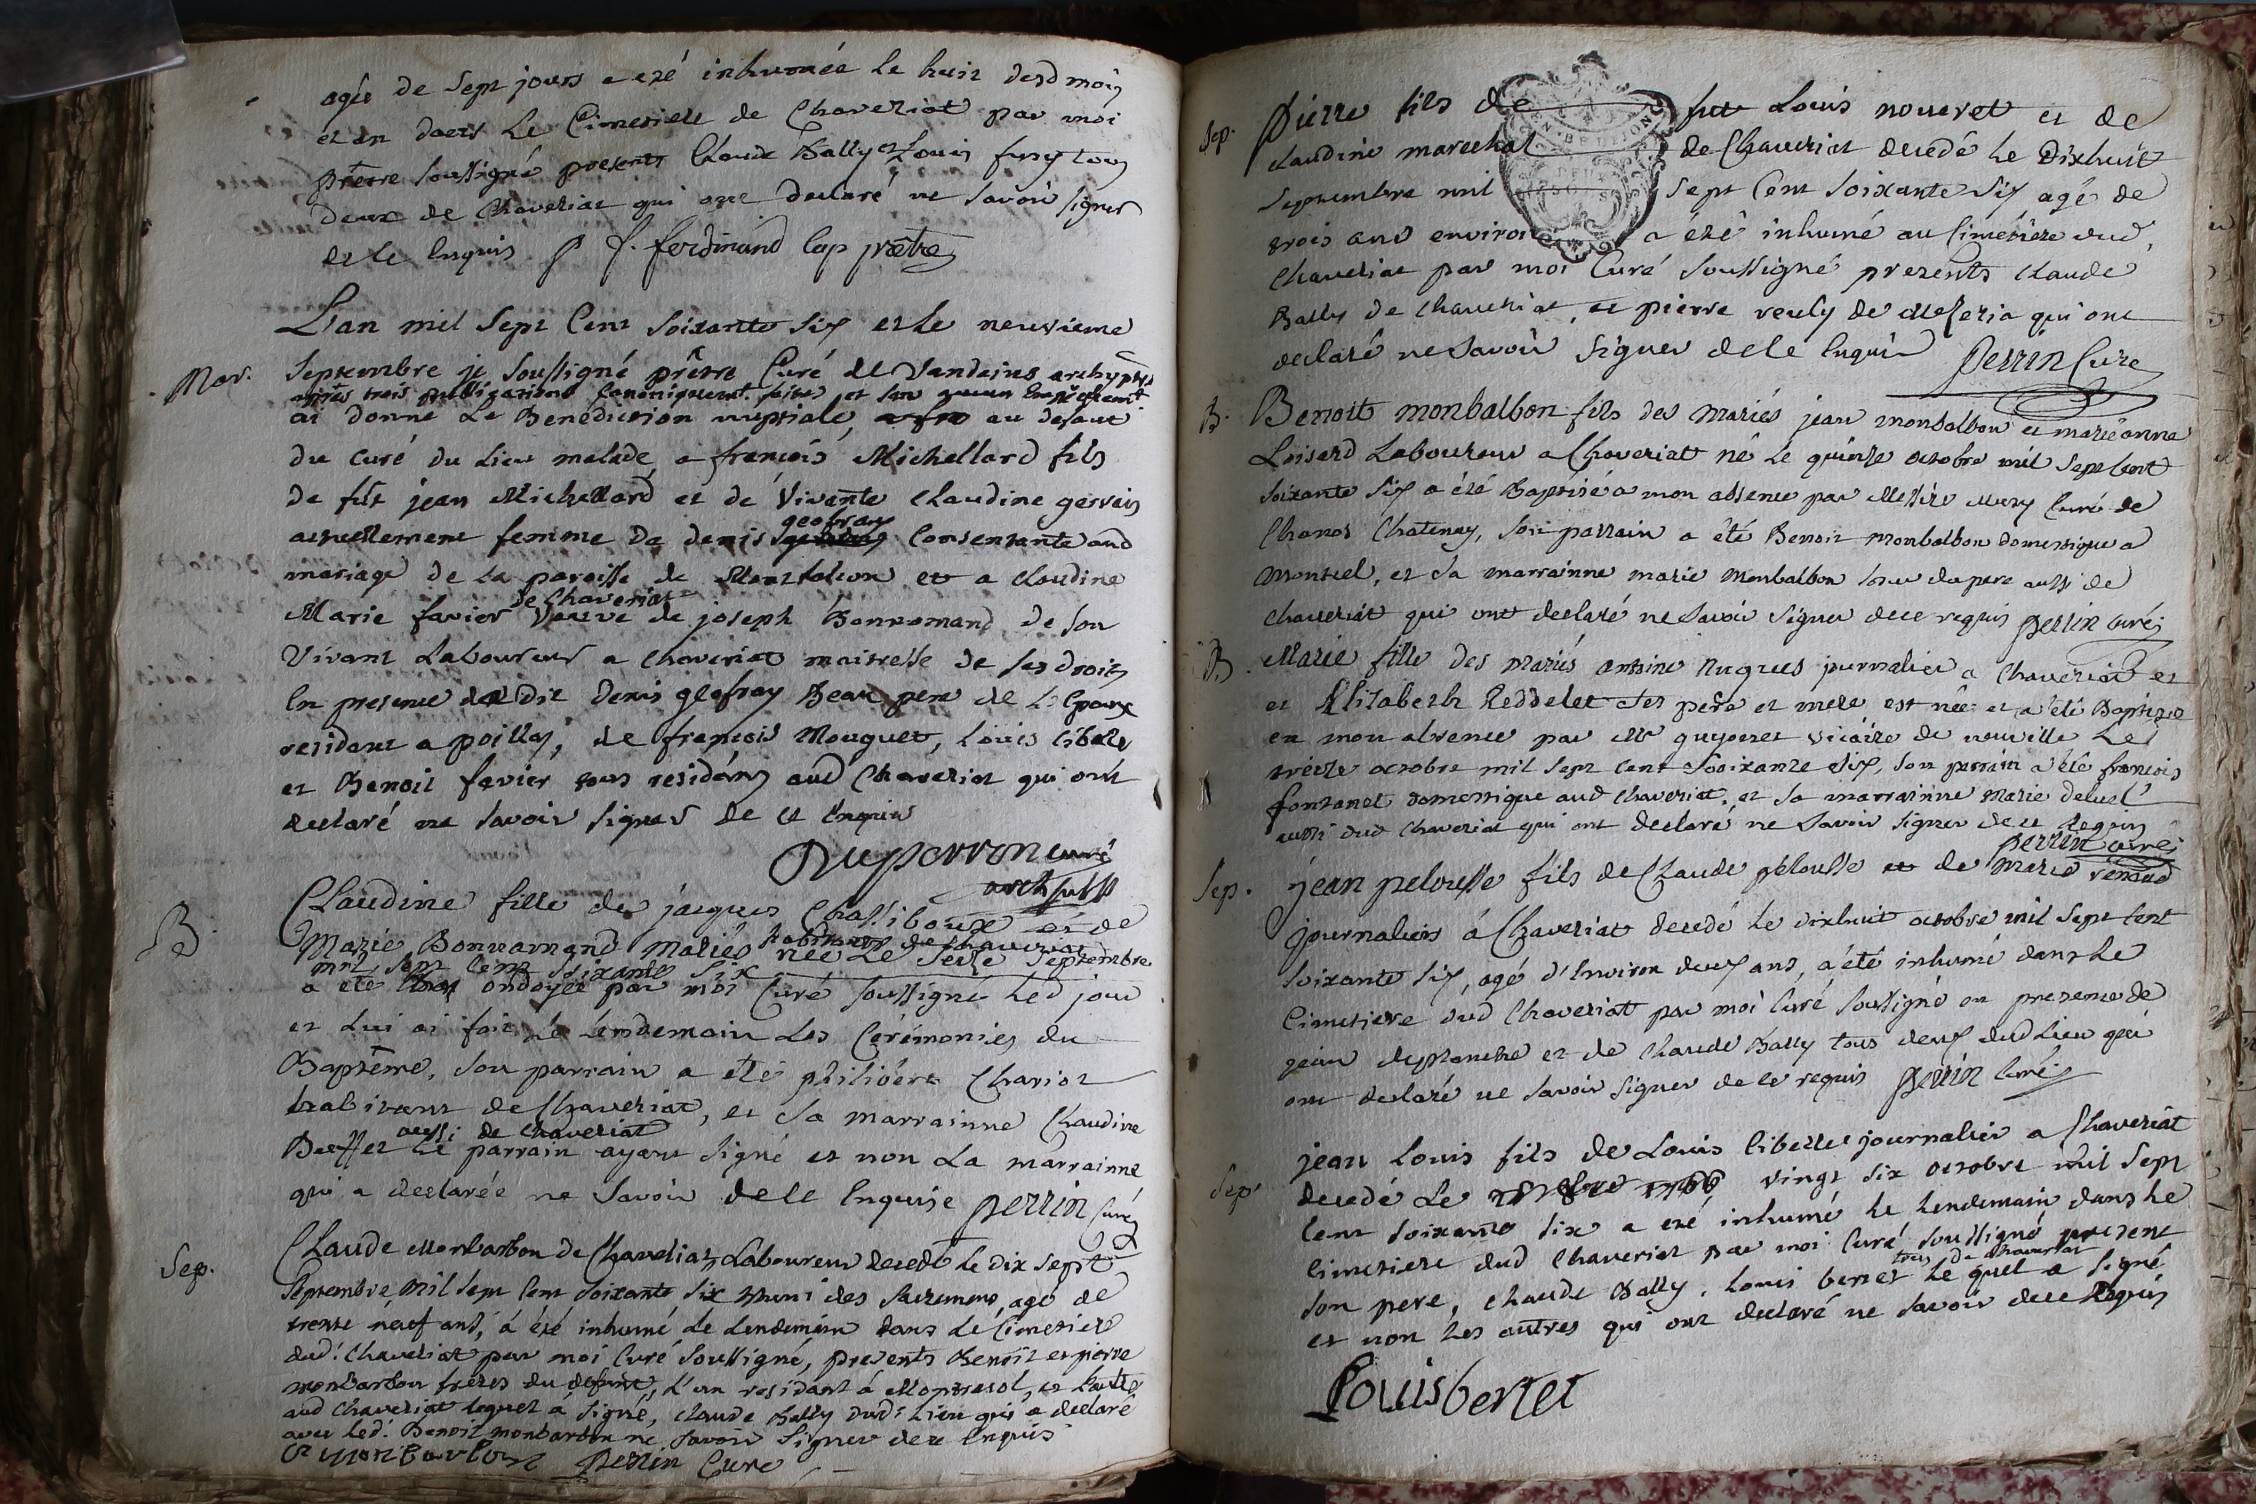 agée de sept jours a eté inhumée le huit dud mois
et an dans le Cimetiere de Chaveriat par moi
prêtre soussigné presents Claude Bally et Louis tous
deux de Chaveriat qui ont declaré ne savoir signer
de ce enquis f. ferdinand Cap prêtre
L'an mil sept Cent soixante six et le neuvieme
Mar. septembre je soussigné prêtre Curé de Vandeins archyptre
après trois publications Canoniquement faites et sans aucun Empêchement
ai donné la Benediction nuptiale, au defaut
du curé du lieu malade, a françois Michellard fils
de fût jean Michellard et de Vivante Claudine gervais
actuellement femme de denis geofray Consentante aud
mariage de la paroisse de et a Claudine
de Chaveriat
Marie favier Veuve de joseph Bonnomand, de son
Vivant Laboureur a Chaveriat maitresse de ses droits
En presence dudit denis geofray Beau pere de l'Epoux
residant a poillas, de françois Mouguet, Louis libelle
et Benoit favier tous residans aud Chaveriat qui ont
declaré ne savoir signer de ce Enquis
Duperron curé
archiptr
B Claudine fille de jacques Chassiboux et de
Marie Bonnamand mariés habitants de Chaveriat née le seize septembre
mil sept Cent soixante six
a été ondoyée par moi Curé soussigné led jour
et lui ai fait le lendemain les Cérémonies du
Baptême, son parrain a été philibert Chariot
habitant de Chaveriat, et sa marrainne Claudine
aussi de Chaveriat
Buffet le parrain ayant signé et non la marrainne
qui a declarée ne savoir de ce Enquise perrin Curé
Sep. Claude Monbarbon de Chaveriat Laboureur decedé le dix sept
septembre mil sept Cent soixante six muni des sacremens, agé de
trente neuf ans, a été inhumé le lendemain dans le Cimetiere
dud. Chaveriat par moi Curé soussigné, presents Benoit et pierre
monbarbon freres du defunt, l'un residant à Montresol, et l'autre
aud Chaveriat lequel a signé, Claude Bally dud. Lieu qui a declaré
avec led. Benoit monbarbon ne savoir signer de ce Enquis
monbarbon perrin Curé
Sep. Pierre fils de fut Louis noueret et de
Claudine marechal de Chaveriat decedé le Dixhuit
septembre mil sept Cent soixante six agé de
trois ans environ a été inhumé au Cimetière dud.
Chaveriat par moi Curé soussigné presents Claude
Bally de Chaveriat, et pierre veuly de Mezeria qui ont
declaré ne savoir signer de ce Enquis perrin Curé
B. Benoit monbalbon fils des mariés jean monbalbon et marie anne
Loisard Laboureur a Chaveriat né le quinze octobre mil sept Cent
soixante six a été Baptisé a mon absence par Messire Mery Curé de
Chanos Chatenay, son parrain a été Benoit monbalbon domestique a
Montcel, et sa marrainne marie monbalbon soeur du pere aussi de
Chaveriat qui ont declaré ne savoir signer de ce requis perrin Curé
B. Marie fille des mariés antoine nugues journalier a Chaveriat et
et Elizabeth Reddelet ses pere et mere est née et a été Baptisée
en mon absence par Mr guyonnet vicaire de neuville le
treize octobre mil sept cent soixante six, son parrain a été françois
fontanet domestique aud Chaveriat, et sa marrainne Marie deluel
aussi dud Chaveriat qui ont declaré ne savoir signer de ce Requis
perrin curé
Sep. jean pelousse fils de Claude pélousse et de marie renaud
journaliers á Chaveriat decedé le dixhuit octobre mil sept Cent
soixante six, agé d'Environ deux ans, a été inhumé dans le
Cimetiere dud Chaveriat par moi Curé soussigné en presence de
jean desplanche et de Claude Bally tous deux dud Lieu qui
ont declaré ne savoir signer de ce requis perrin Curé
jean Louis fils de Louis libelle journalier a Chaveriat
Sep. decedé le vingt six octobre mil sept
Cent soixante six a eté inhumé le lendemain dans le
Cimetiere dud Chaveriat par moi Curé soussigné present
tous de Chaveriat
son pere, Claude Bally, Louis bertet le quel a signé
et non les autres qui ont declaré ne savoir de ce Requis
Louis bertet